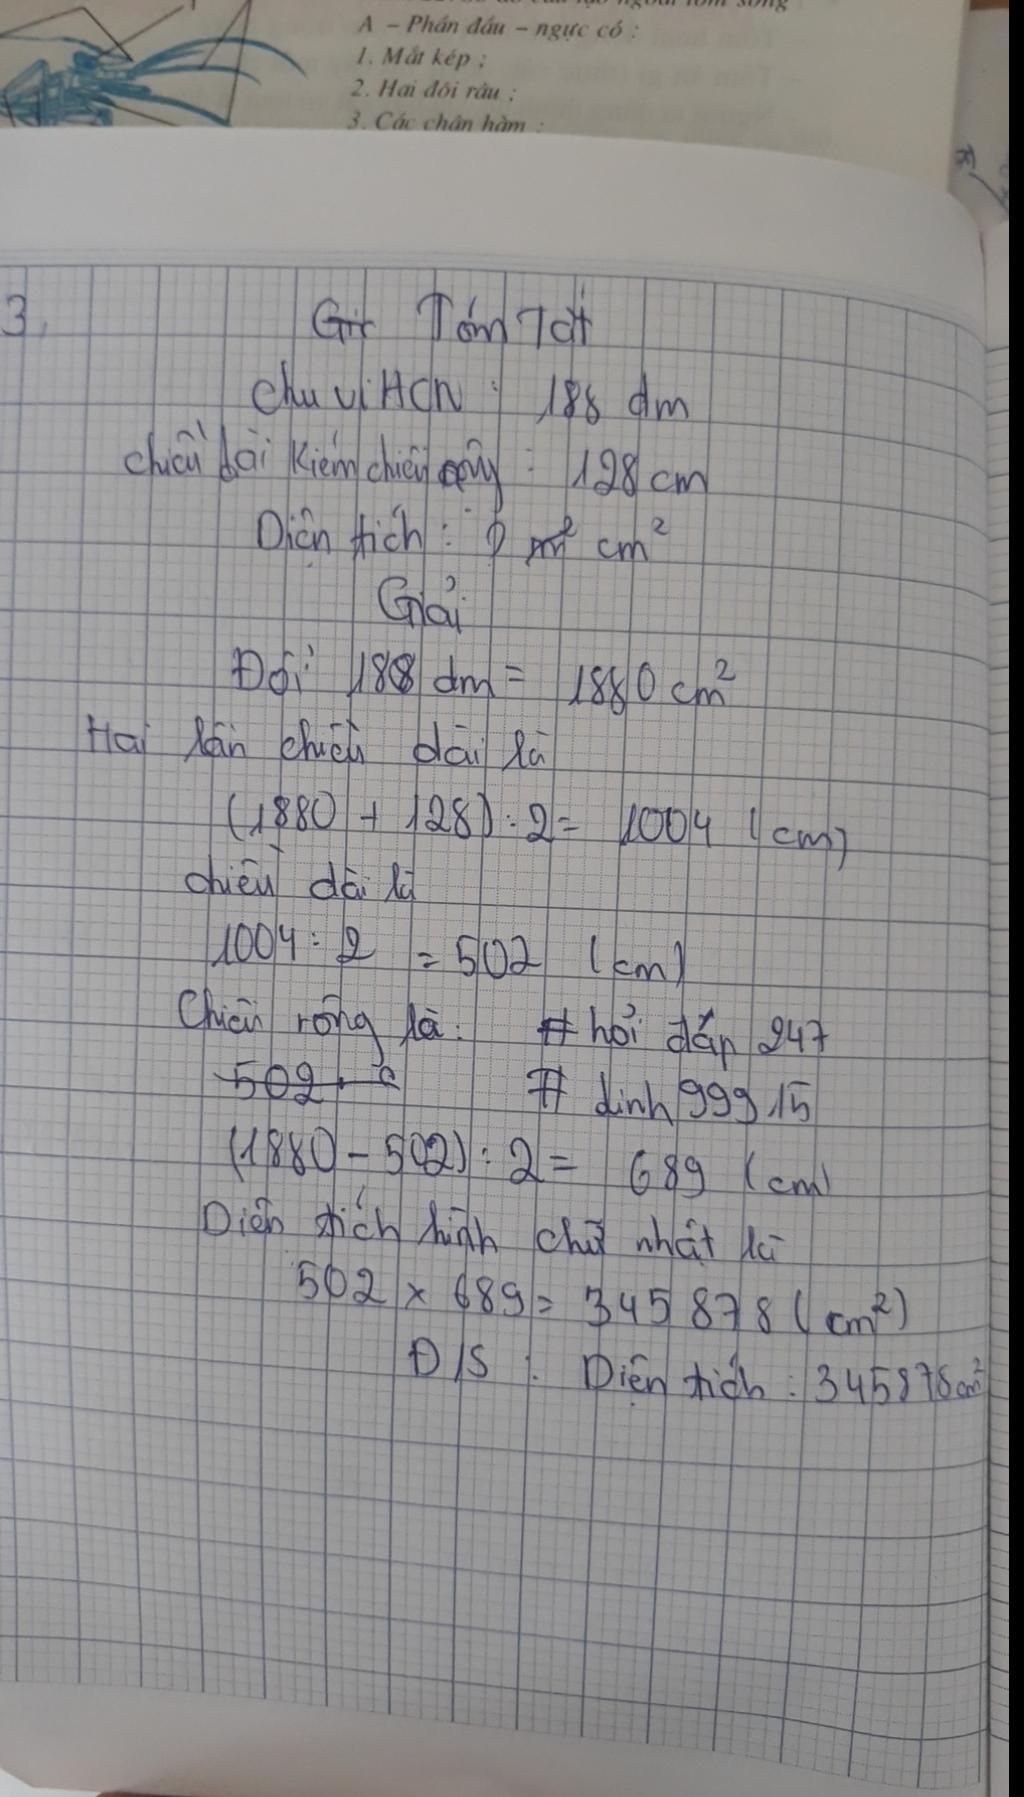 A - Phần đầu - ngực có :
1. Mắt kép ;
2. Hai đôi râu ;
3. Các chân hàm :
3.
Tóm Tắt
Chu vi HCN : 188 dm
chiều dài kiếm chiều : 128 cm
Diện tích : ? cm²
Giải
Đổi 188 dm = 1880 cm²
Hai lần chiều dài là
(1880 + 128) : 2 = 1004 (cm)
chiều dài là
1004 : 2 = 502 (cm)
Chiều rộng là :
# hỏi đáp 247
502 -
# dinh 999 15
(1880 - 502) : 2 = 689 (cm)
Diện tích hình chữ nhật là
502 x 689 = 345 878 (cm²)
Đ/S : Diện tích : 345878 cm²